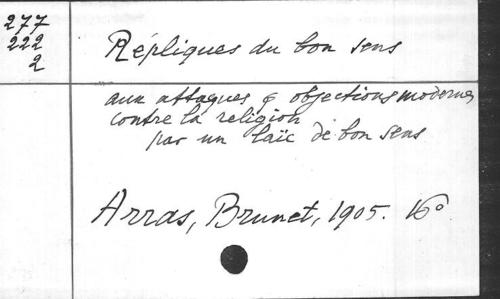 277
222
2
Répliques du bon sens
aux attaques & objections modernes
contre la religion
par un laïc de bon sens
Arras, Brunet, 1905. 16°